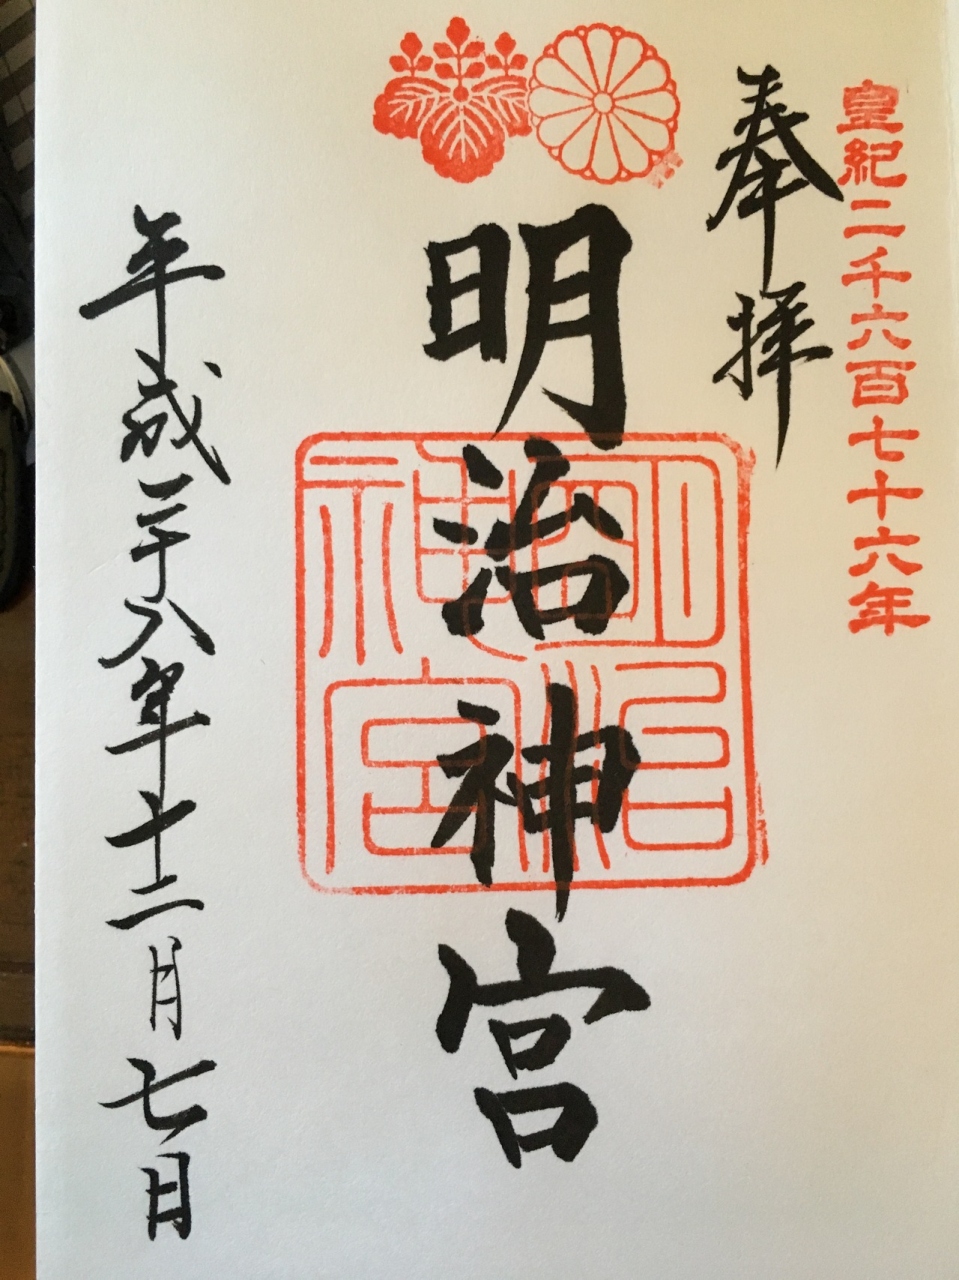 皇紀二千六百七十六年
奉拝
明治神宮
明治
神宮
平成二十八年十二月七日